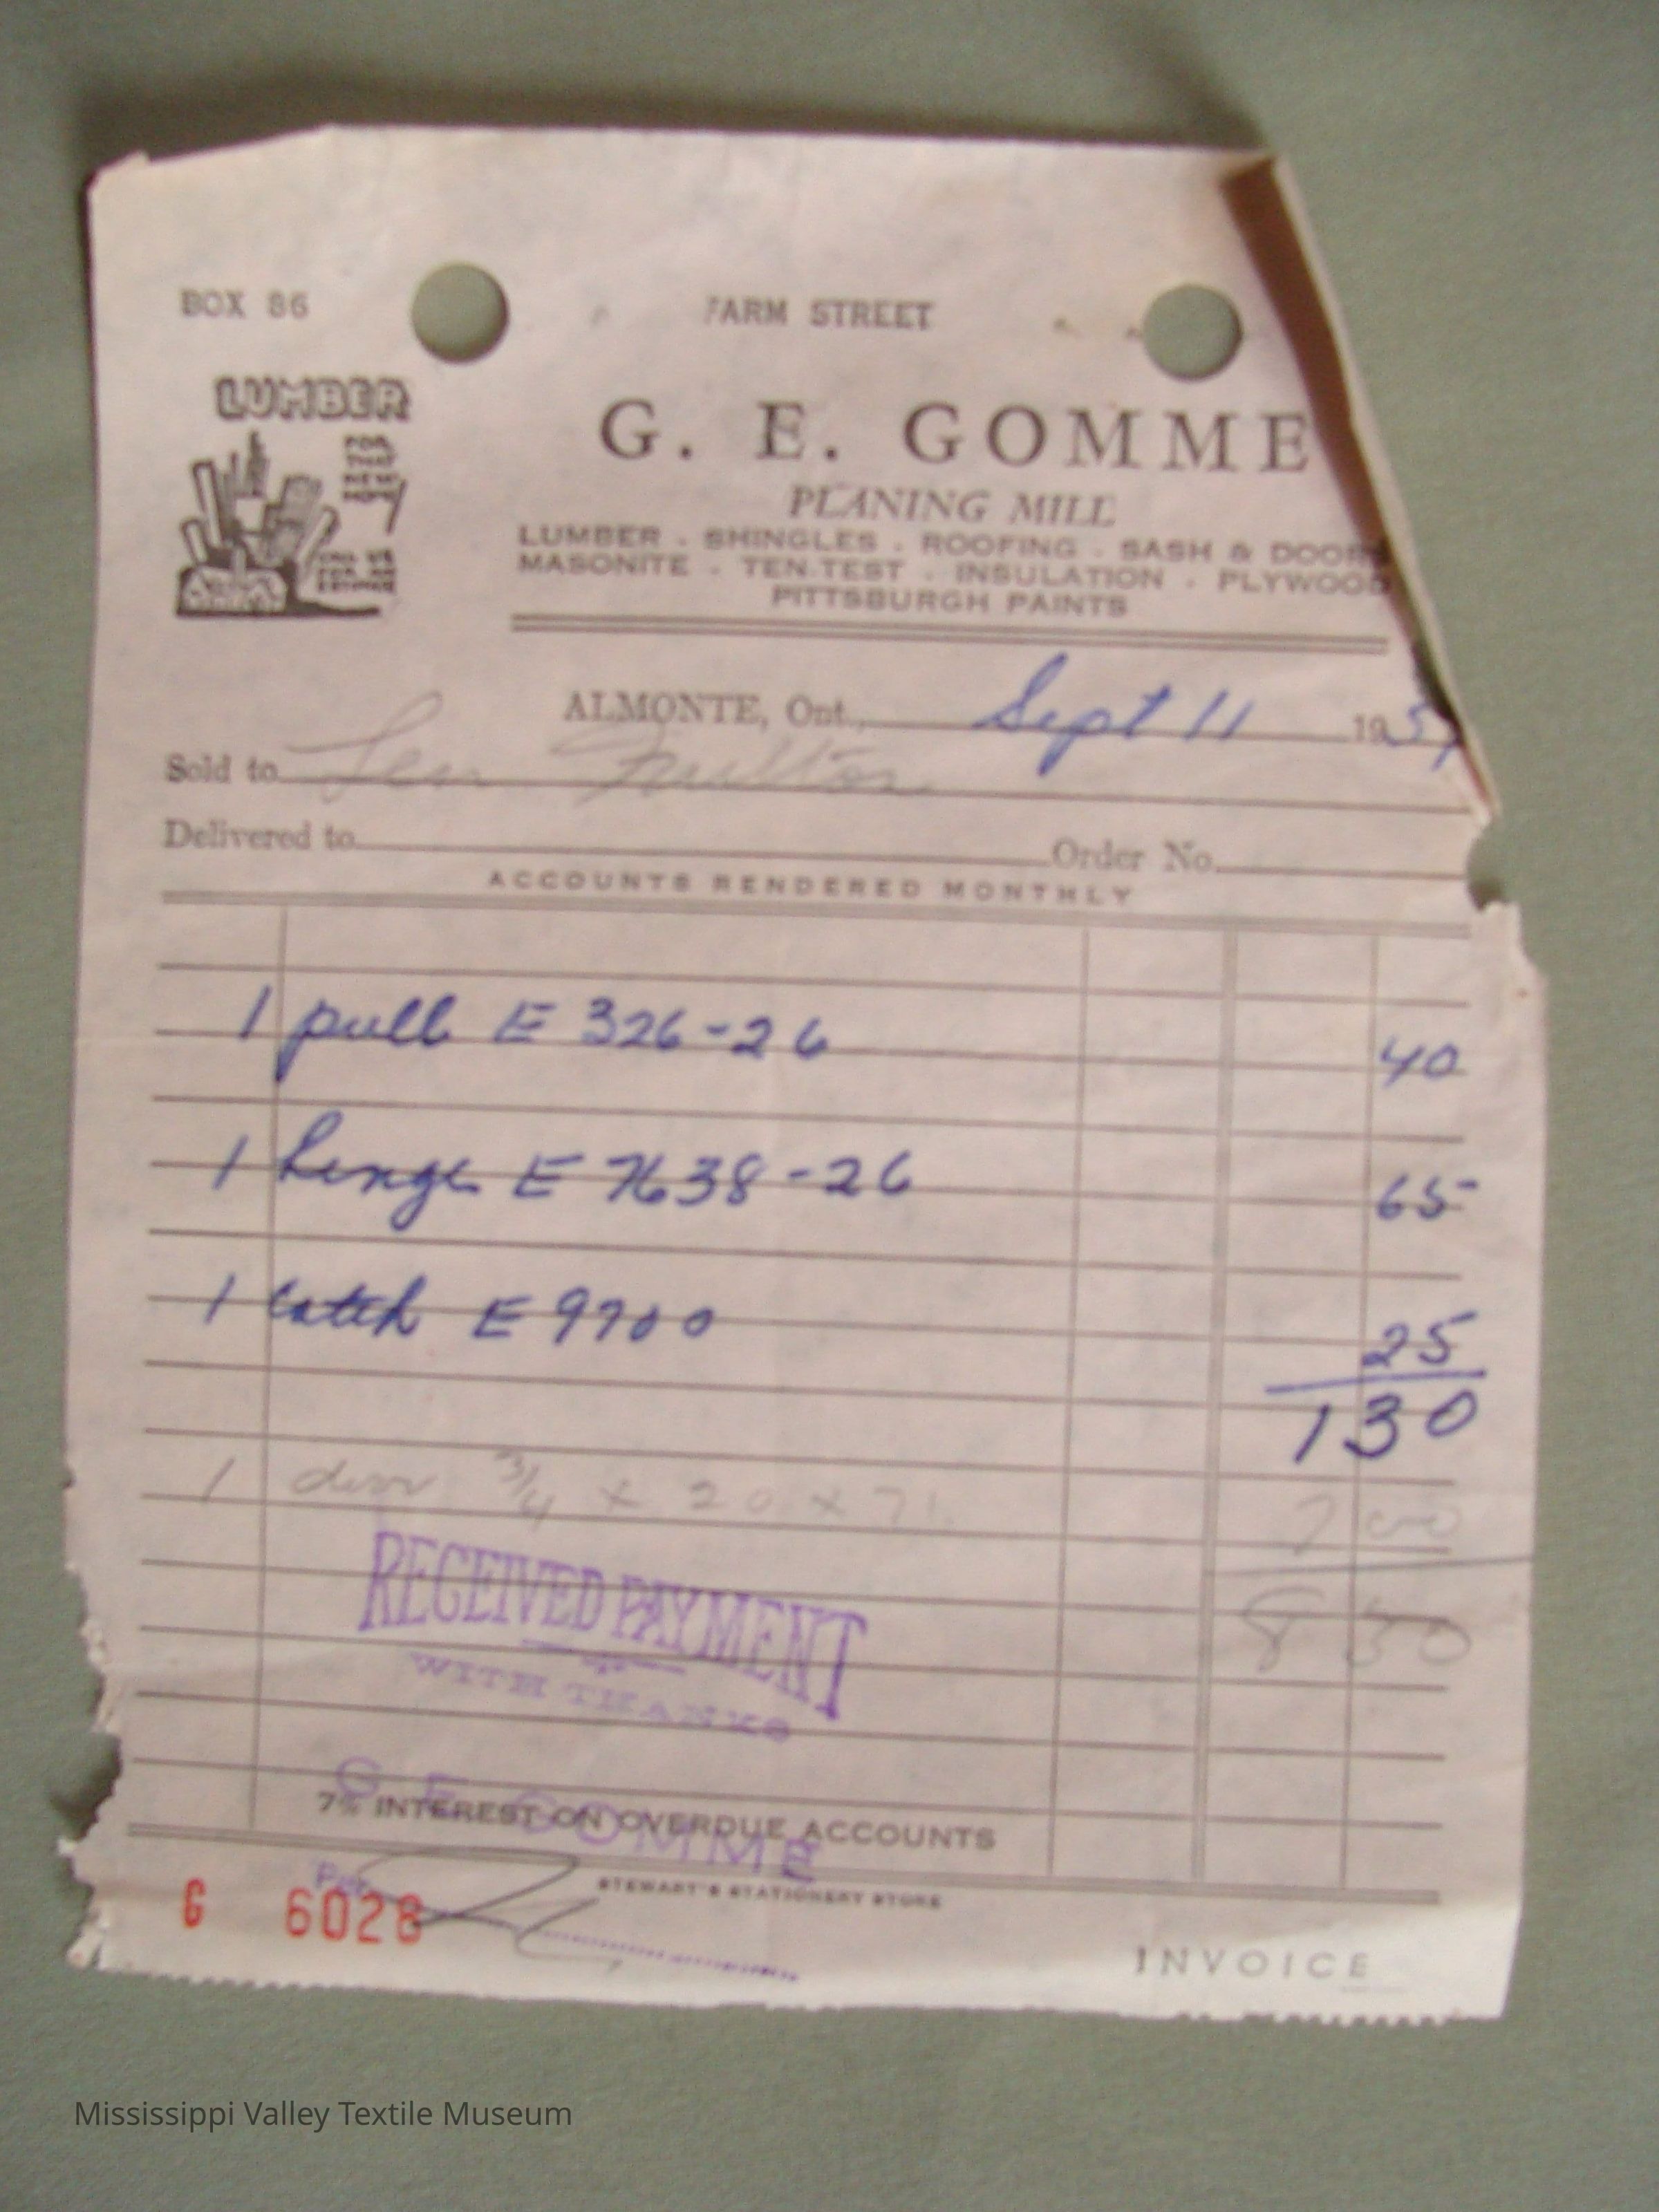 BOX 86 FARM STREET
LUMBER
FOR
THAT
NEW
G. E. GOMME
PLANING MILL
LUMBER . SHINGLES . ROOFING . SASH & DOOR
MASONITE . TEN-TEST . INSULATION . PLYWOOD
PITTSBURGH PAINTS
ALMONTE, Ont., Sept 11 195
Sold to Len Fulton
Delivered to Order No.
ACCOUNTS RENDERED MONTHLY
1 pull E 326-26 40
1 hinge E 7638-26 65
1 catch E 9700 25
1 30
1 door 3/4 x 20 x 71 7 00
8 30
RECEIVED PAYMENT
WITH THANKS
G. E. GOMME
7% INTEREST ON OVERDUE ACCOUNTS
Per
STEWART'S STATIONERY STORE
G 6028
INVOICE
Mississippi Valley Textile Museum